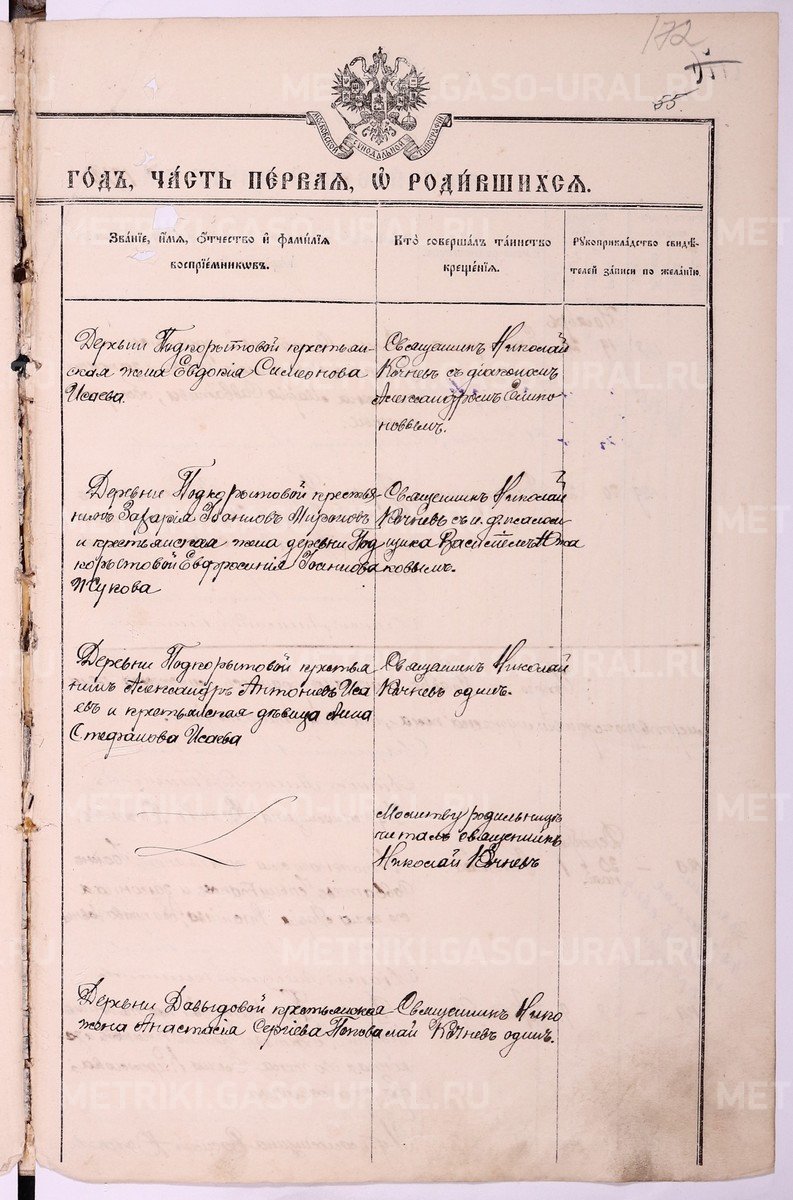 172
55.
МОСКОВСКОЙ СѴНОДАЛЬНОЙ ТИПОГРАФІИ
ГО́ДЪ, ЧА́СТЬ ПЕ́РВАЯ, Ѡ҆ РОДИ́ВШИХСЯ.
Зва́нїе, и҆́мя, ѻ҆́тчество и҆ фами́лїя
воспрїе́мникѡвъ.
Кто̀ соверша́лъ та́инство
креще́нїя.
Рꙋкоприкла́дство свидѣ́-
телей за́писи по жела́нїю
Деревни Подкорытовой крестьян-
ская жена Евдокія Симеонова
Исаева.
Священникъ Николай
Кочневъ съ діакономъ
Александромъ
новымъ.
Деревни Подкорытовой крестья-
нинъ Захарія Іоанновъ Мироновъ
и крестьянская жена деревни Под
корытовой Евфросинія Іоаннова
Жукова
Священникъ Николай
Кочневъ съ и. д. псалом
щика Василіемъ Южа
ковымъ.
Деревни Подкорытовой крестья
нинъ Александръ Антоніевъ Иса
евъ и крестьянская дѣвица Анна
Стефанова Исаева
Священникъ Николай
Кочневъ одинъ.
Молитву родильницѣ
читалъ священникъ
Николай Кочневъ
Деревни Давыдовой крестьянская
жена Анастасія Сергіева Попова
Священникъ Нико
лай Кочневъ одинъ.
METRIKI.GASO-URAL.RU